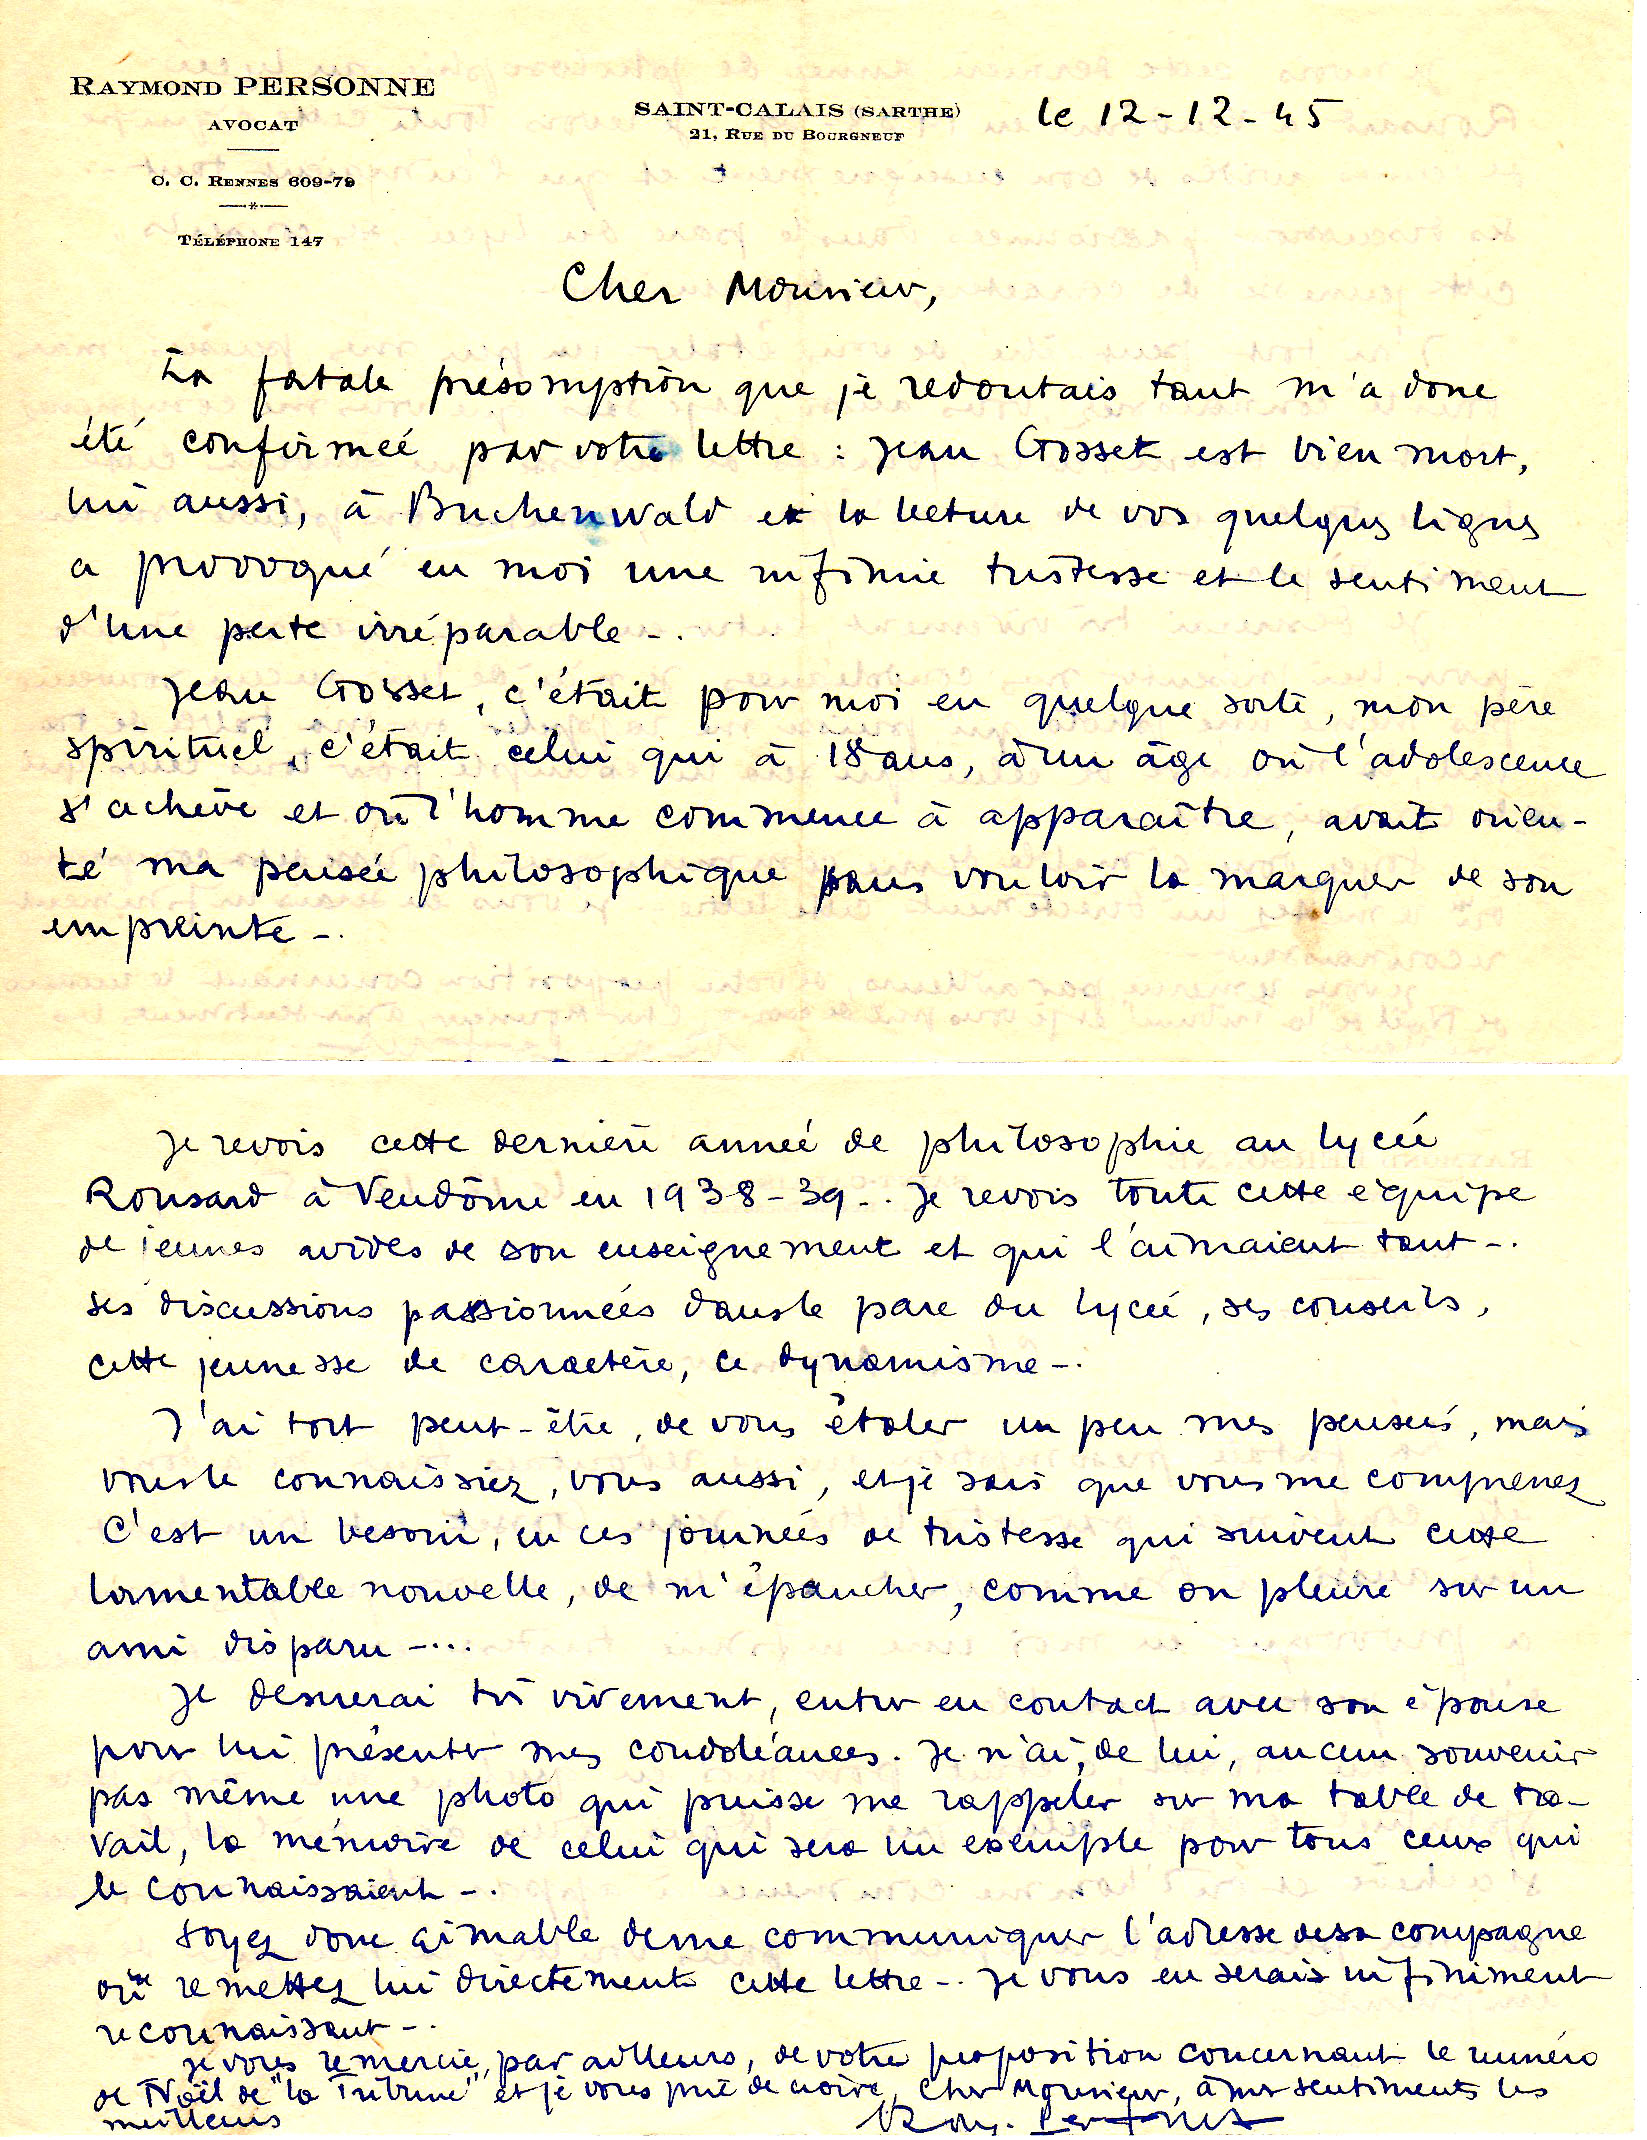 RAYMOND PERSONNE
AVOCAT
C. C. RENNES 609-79
TÉLÉPHONE 147
SAINT-CALAIS (SARTHE)
21, RUE DU BOURGNEUF
le 12-12-45
Cher Monsieur,
La fatale présomption que je redoutais tant m'a donc
été confirmée par votre lettre : Jean Gosset est bien mort,
lui aussi, à Buchenwald et la lecture de vos quelques lignes
a provoqué en moi une infinie tristesse et le sentiment
d'une perte irréparable -.
Jean Gosset, c'était pour moi en quelque sorte, mon père
spirituel, c'était celui qui à 18 ans, à un âge où l'adolescence
s'achève et où l'homme commence à apparaître, avait orien-
té ma pensée philosophique sans vouloir la marquer de son
empreinte -.
Je revois cette dernière année de philosophie au lycée
Ronsard à Vendôme en 1938-39 -. Je revois toute cette équipe
de jeunes avides de son enseignement et qui l'aimaient tant -.
Ses discussions passionnées dans le parc du lycée, ses conseils,
cette jeunesse de caractère, ce dynamisme -.
J'ai tort peut-être, de vous étaler un peu mes pensées, mais
vous le connaissiez, vous aussi, et je sais que vous me comprenez
C'est un besoin, en ces journées de tristesse qui suivent cette
lamentable nouvelle, de m'épancher, comme on pleure sur un
ami disparu -...
Je desirerai très vivement, entrer en contact avec son épouse
pour lui présenter mes condoléances. Je n'ai, de lui, aucun souvenir
pas même une photo qui puisse me rappeler sur ma table de tra-
vail, la mémoire de celui qui sera un exemple pour tous ceux qui
le connaissaient -.
Soyez donc aimable de me communiquer l'adresse de sa compagne
ou remettez lui directement cette lettre -. Je vous en serais infiniment
reconnaissant -.
Je vous remercie, par ailleurs, de votre proposition concernant le numéro
de Noël de "la Tribune" et je vous prie de croire, Cher Monsieur, à mes sentiments les
meilleurs
Ray. Personne